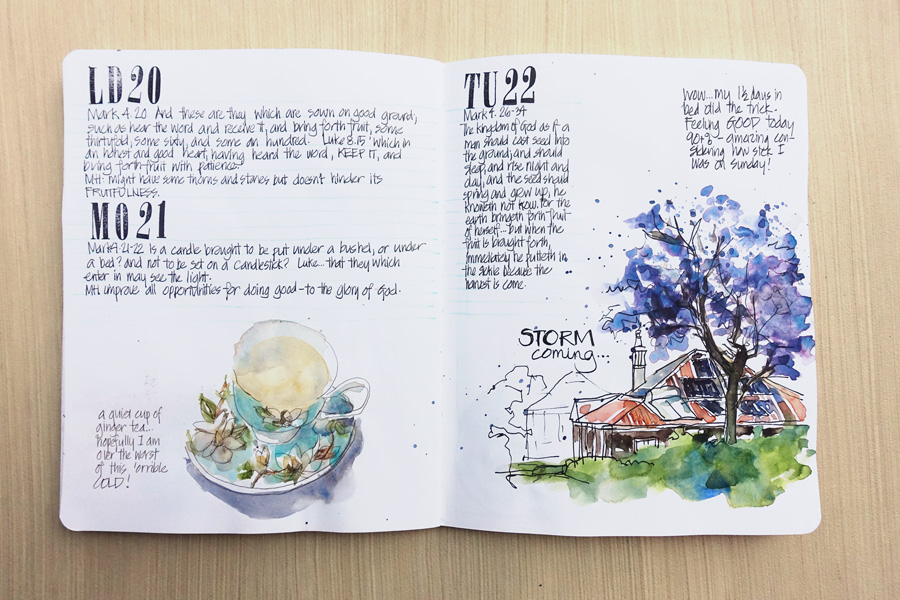 LD20
Mark 4.20 And these are they which are sown on good ground;
such as hear the word and receive it, and bring forth fruit, some
thirtyfold, some sixty, and some an hundred. Luke 8.15 'Which in
an honest and good heart, having heard the word, KEEP IT, and
bring forth fruit with patience.
MH. might have some thorns and stones but doesn't hinder its
FRUITFULNESS.
MO21
Mark 4.21-22 Is a candle brought to be put under a bushel, or under
a bed? and not to be set on a candlestick? Luke... that they which
enter in may see the light.
MH. improve all opportunities for doing good - to the glory of God.
a quiet cup of
ginger tea...
hopefully I am
over the worst
of this 'orrible
COLD!
TU22
Mark 4. 26-34
The kingdom of God as if a
man should cast seed into
the ground; and should
sleep, and rise night and
day, and the seed should
spring and grow up, he
knoweth not how. For the
earth bringeth forth fruit
of herself... but when the
fruit is brought forth,
immediately he putteth in
the sickle because the
harvest is come.
Wow... my 1½ days in
bed did the trick.
Feeling GOOD today
90+%- amazing con-
sidering how sick I
was on Sunday!
STORM
coming...